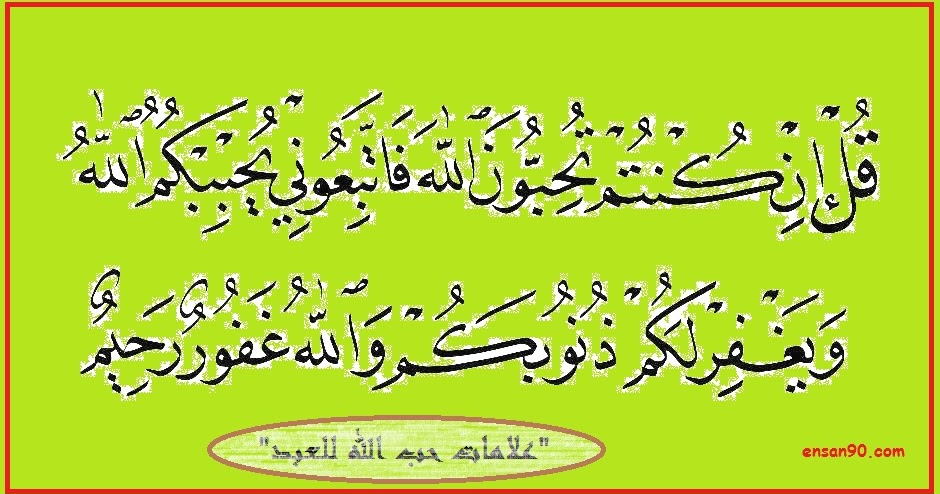 قُلْ إِن كُنتُمْ تُحِبُّونَ ٱللَّهَ فَاتَّبِعُونِي يُحْبِبْكُمُ ٱللَّهُ
وَيَغْفِرْ لَكُمْ ذُنُوبَكُمْ وَٱللَّهُ غَفُورٌ رَحِيمٌ
"علامات حب الله للعبد"
ensan90.com